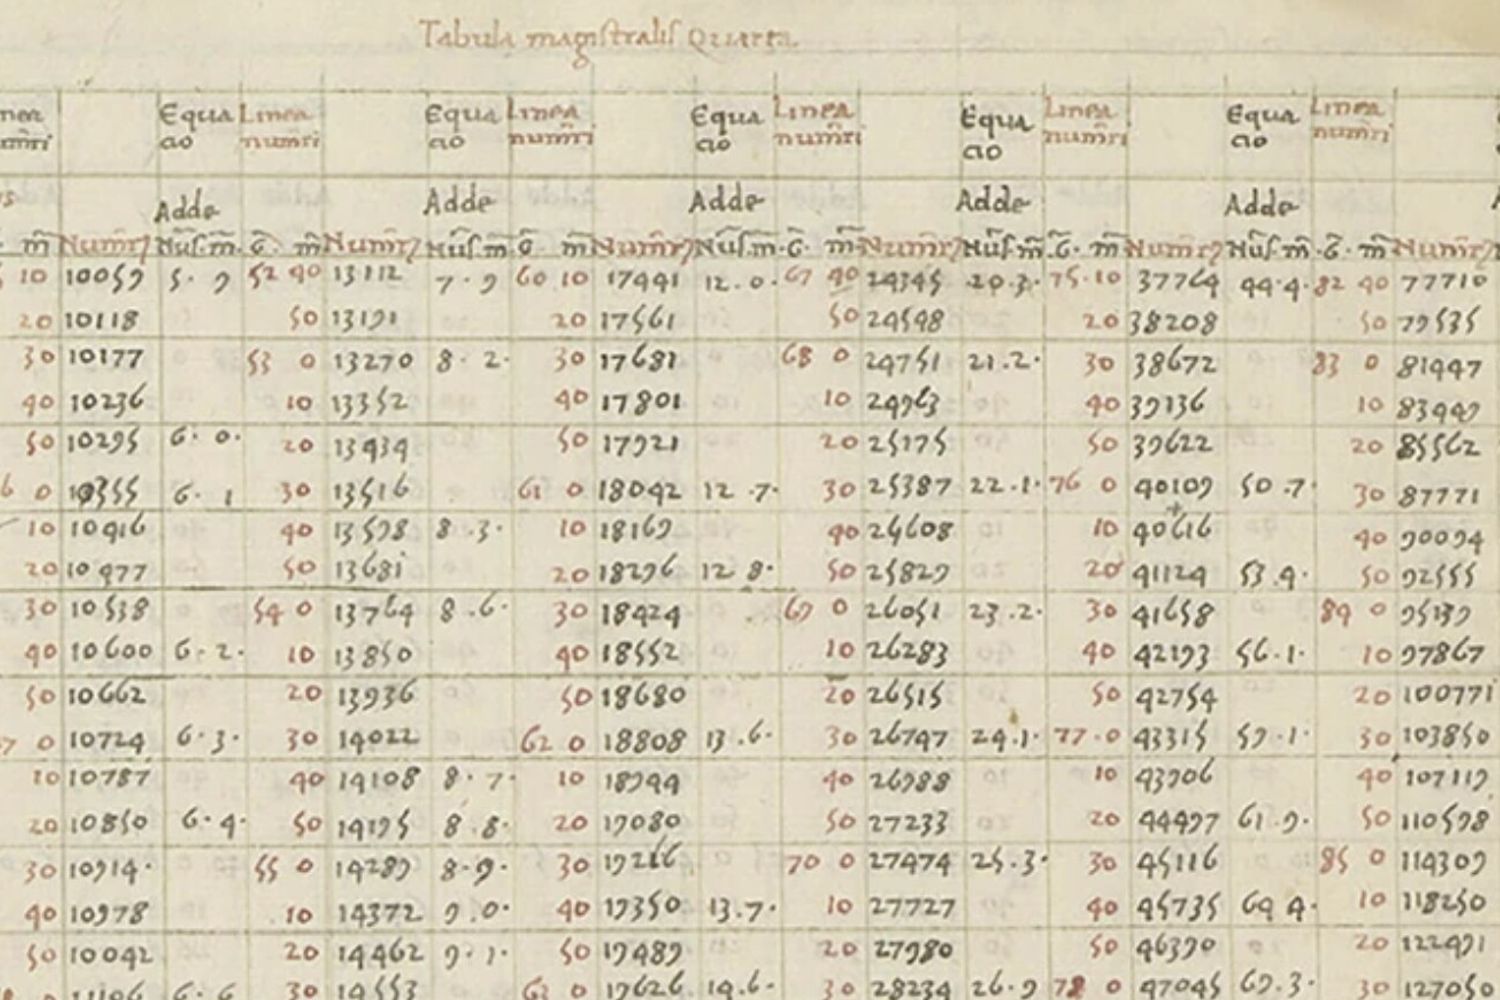 Tabula magistralis Quarta.
Equa Linea Equa Linea Equa Linea Equa Linea Equa Linea
cio num̄ri cio num̄ri cio num̄ri cio num̄ri cio num̄ri
Adde Adde Adde Adde Adde
10 10059 5 · 9 52 40 13112 7 · 9 60 10 17441 12 . 0 · 67 40 24345 20 · 3 · 75 · 10 37764 44 · 4 · 82 40 77710
20 10118 50 13191 20 17561 50 24548 20 38208 50 79535
30 10177 53 0 13270 8 · 2 · 30 17681 68 0 24751 21 . 2 · 30 38672 83 0 81447
40 10236 10 13352 40 17801 10 24963 40 39136 10 83449
50 10295 6 · 0 · 20 13434 50 17921 20 25175 50 39622 20 85562
6 0 10355 6 · 1 30 13516 61 0 18042 12 · 7 · 30 25387 22 · 1 · 76 0 40109 50 · 7 · 30 87771
10 10416 40 13598 8 · 3 · 10 18169 40 25608 10 40616 40 90094
20 10477 50 13681 20 18296 12 8 · 50 25829 20 41124 53 . 4 · 50 92555
30 10538 54 0 13764 8 . 6 · 30 18424 69 0 26051 23 . 2 · 30 41658 84 0 95139
40 10600 6 · 2 · 10 13850 40 18552 10 26283 40 42193 56 · 1 · 10 97867
50 10662 20 13936 50 18680 20 26515 50 42754 20 100771
7 0 10724 6 · 3 · 30 14022 62 0 18808 13 . 6 · 30 26747 24 · 1 · 77 · 0 43315 59 · 1 · 30 103850
10 10787 40 14108 8 · 7 · 10 18944 40 26988 10 43906 40 107119
20 10850 6 · 4 · 50 14195 8 · 8 · 20 19080 50 27233 20 44497 61 · 9 · 50 110598
30 10914 · 55 0 14289 8 · 9 · 30 19216 70 0 27474 25 · 3 · 30 45116 85 0 114309
40 10978 10 14372 9 . 0 · 40 19350 13 · 7 · 10 27727 40 45735 64 4 · 10 118250
50 10042 20 14462 9 · 1 · 50 19489 20 27980 50 46390 20 122491
30 14553 63 0 19626 14 . 6 · 30 28234 26 · 9 78 0 47045 69 . 3 · 30 127050